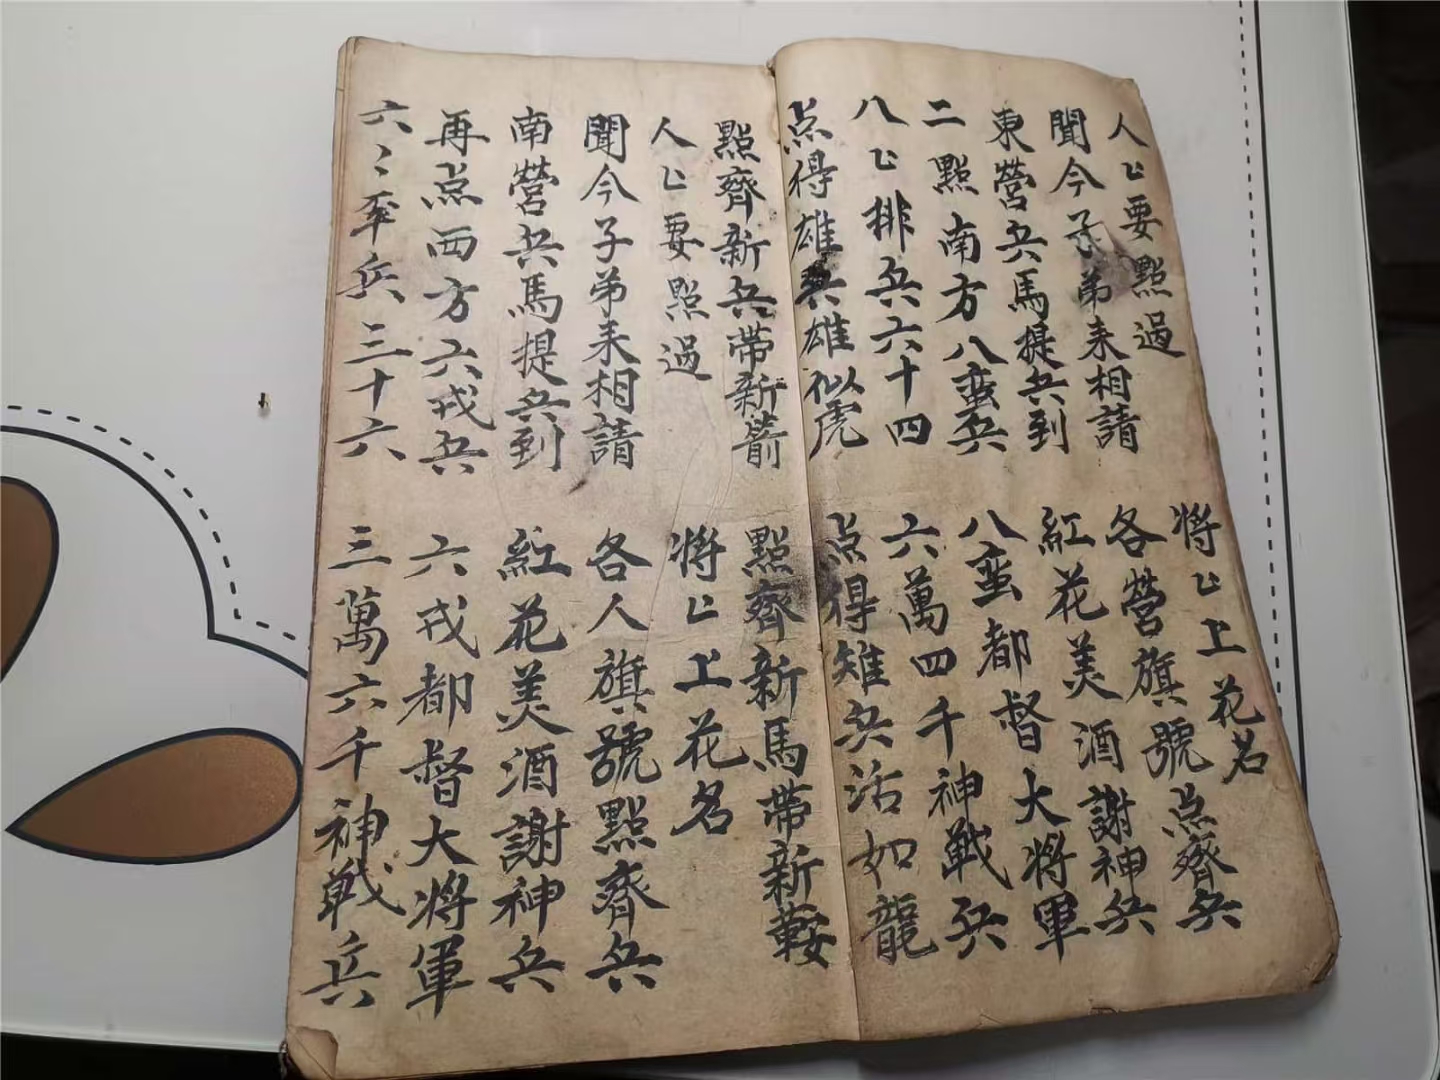 人〻要點過 將〻上花名
聞今子弟来相請 各營旗號点齊兵
東營兵馬提兵到 紅花美酒謝神兵
二點南方八蛮兵 八蛮都督大将軍
八〻排兵六十四 六萬四千神戦兵
点得雄兵雄似虎 点得雄兵活如龍
點齊新兵帶新箭 點齊新馬帶新鞍
人〻要點過 將〻上花名
聞今子弟来相請 各人旗號點齊兵
南營兵馬提兵到 紅花美酒謝神兵
再点西方六戎兵 六戎都督大将軍
六〻至兵三十六 三萬六千神戦兵